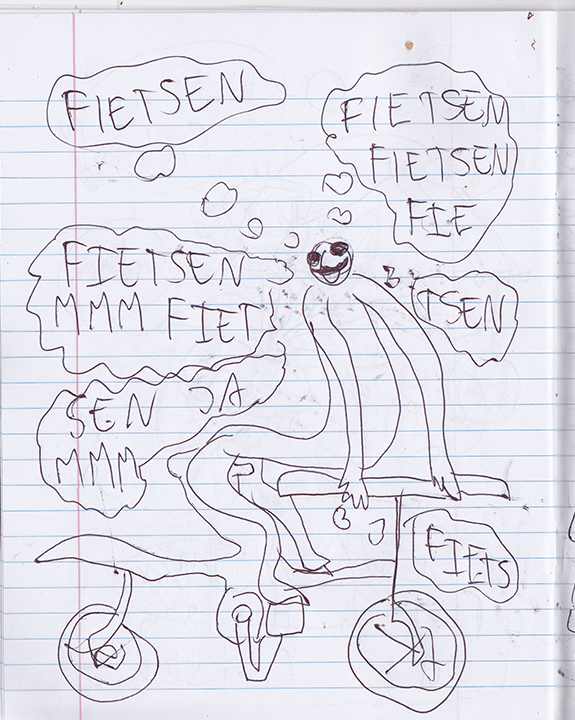 FIETSEN
FIETSEN
FIETSEN
FIE
TSEN
FIETSEN
MMM FIET
SEN JA
MMM
FIETS